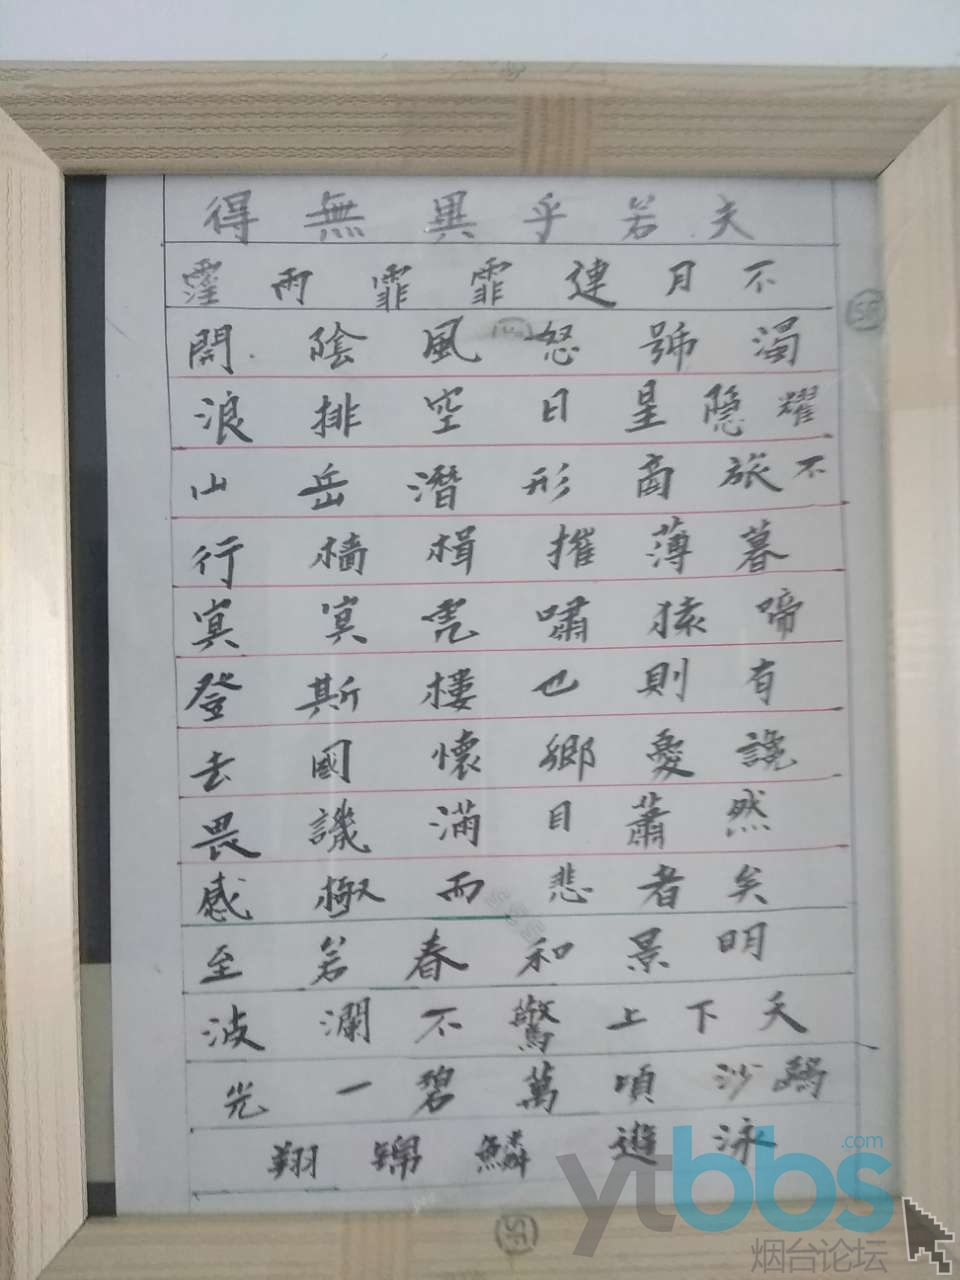 得無異乎若夫
霪雨霏霏連月不
開陰風怒號濁
浪排空日星隐耀
山岳潛形商旅不
行檣楫摧薄暮
冥冥虎嘯猿啼
登斯樓也則有
去國懷鄉憂讒
畏譏滿目蕭然
感極而悲者矣
至若春和景明
波瀾不驚上下天
光一碧萬頃沙鷗
翔錦鱗遊泳
ytbbs.com
烟台论坛